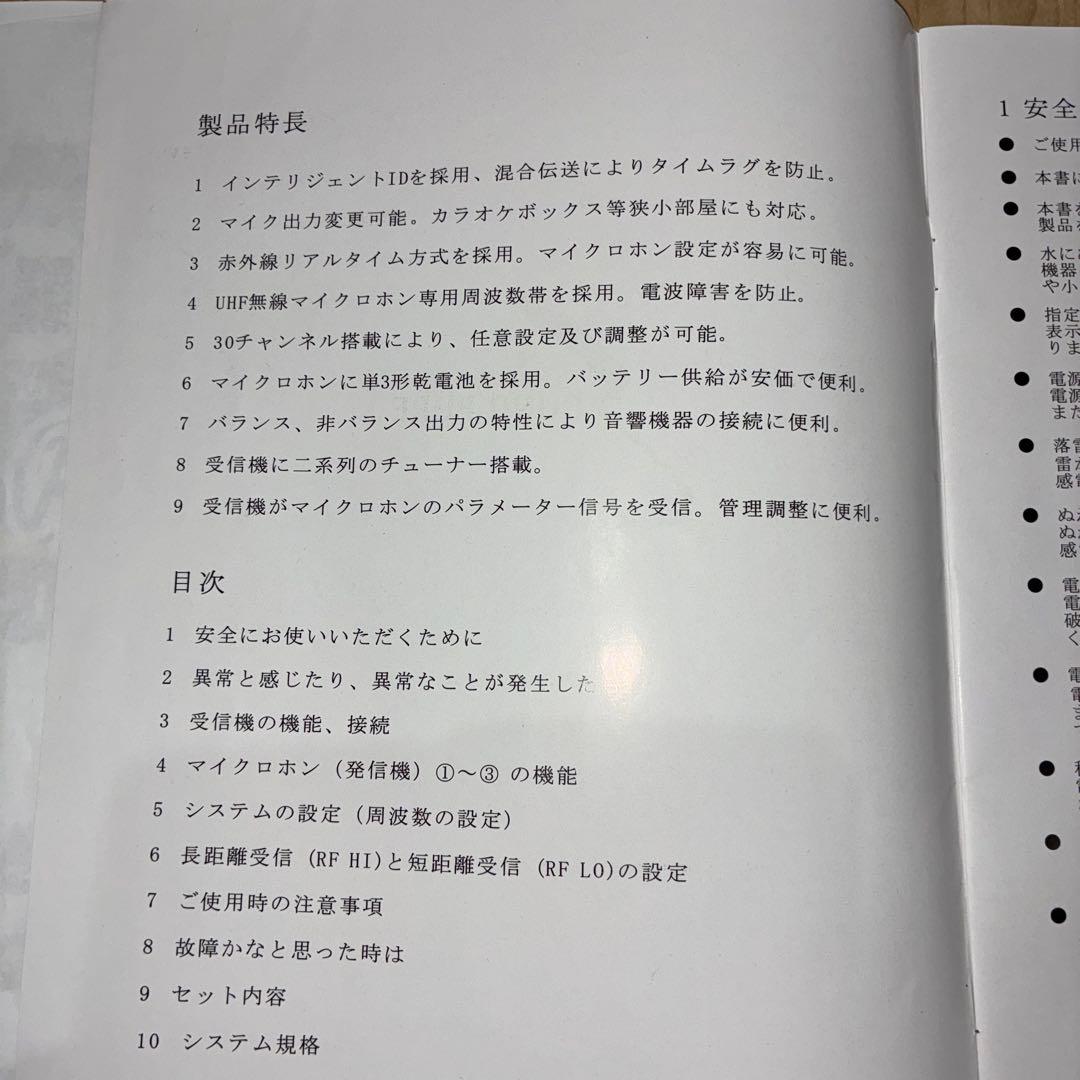 製品特長
1 インテリジェントIDを採用、混合伝送によりタイムラグを防止。
2 マイク出力変更可能。カラオケボックス等狭小部屋にも対応。
3 赤外線リアルタイム方式を採用。マイクロホン設定が容易に可能。
4 UHF無線マイクロホン専用周波数帯を採用。電波障害を防止。
5 30チャンネル搭載により、任意設定及び調整が可能。
6 マイクロホンに単3形乾電池を採用。バッテリー供給が安価で便利。
7 バランス、非バランス出力の特性により音響機器の接続に便利。
8 受信機に二系列のチューナー搭載。
9 受信機がマイクロホンのパラメーター信号を受信。管理調整に便利。
目次
1 安全にお使いいただくために
2 異常と感じたり、異常なことが発生した
3 受信機の機能、接続
4 マイクロホン（発信機）①～③ の機能
5 システムの設定（周波数の設定）
6 長距離受信 (RF HI)と短距離受信 (RF LO)の設定
7 ご使用時の注意事項
8 故障かなと思った時は
9 セット内容
10 システム規格
1 安全
● ご使用
● 本書に
● 本書を
製品を
● 水に
機器
や小
● 指定
表示
りま
● 電源
電源
また
● 落雷
雷が
感電
● ぬ
ぬ
感
● 電
電
破
く
● 電
電
●
●
●